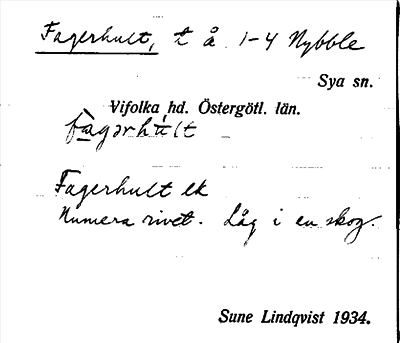 Fagerhult, t å 1-4 Nybble
Sya sn.
Vifolka hd. Östergötl. län.
fàgərhùlt
Fagerhult lk
Numera rivet. Låg i en skog.
Sune Lindqvist 1934.